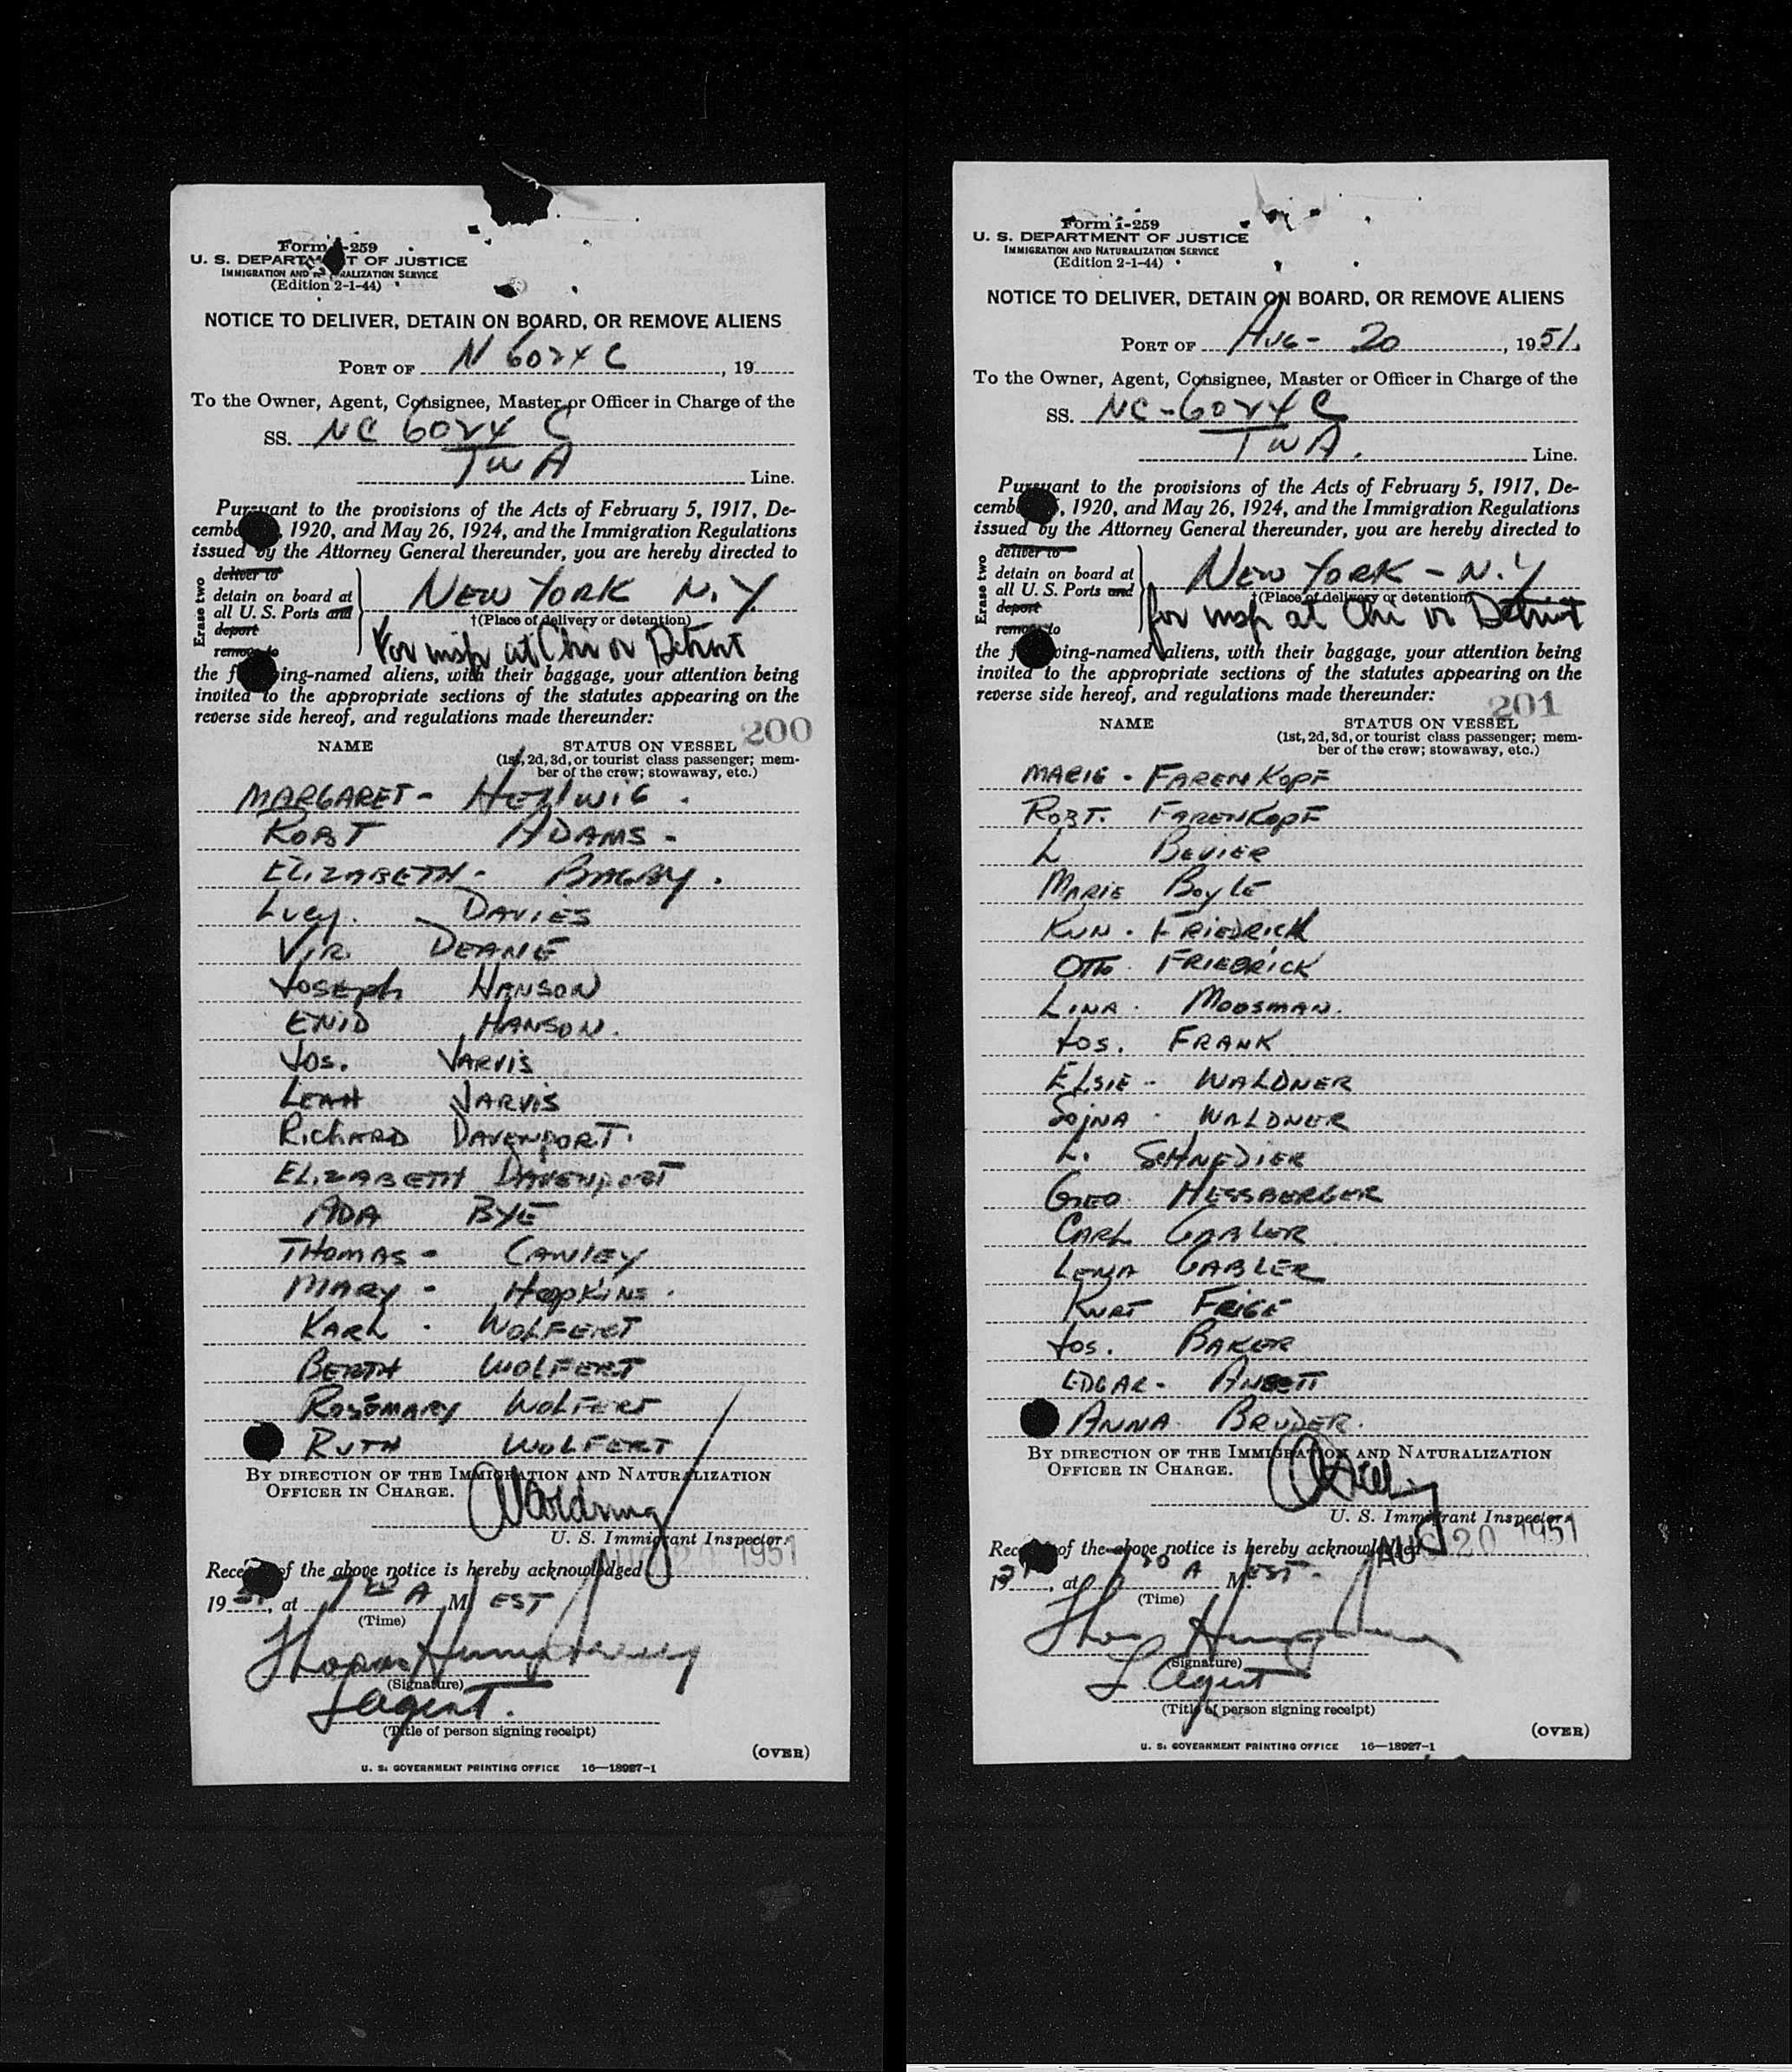 Form I-259
U. S. DEPARTMENT OF JUSTICE
IMMIGRATION AND NATURALIZATION SERVICE
(Edition 2-1-44)
NOTICE TO DELIVER, DETAIN ON BOARD, OR REMOVE ALIENS
PORT OF N 6024 C, 19
To the Owner, Agent, Consignee, Master or Officer in Charge of the
SS. NC 6024 C
TWA Line.
Pursuant to the provisions of the Acts of February 5, 1917, De-
cember, 1920, and May 26, 1924, and the Immigration Regulations
issued by the Attorney General thereunder, you are hereby directed to
Erase two
deliver to
detain on board at
all U. S. Ports and
deport
remove to
NEW YORK N.Y
†(Place of delivery or detention)
For insp at Chi or Detroit
the following-named aliens, with their baggage, your attention being
invited to the appropriate sections of the statutes appearing on the
reverse side hereof, and regulations made thereunder:
200
NAME STATUS ON VESSEL
(1st, 2d, 3d, or tourist class passenger; mem-
ber of the crew; stowaway, etc.)
MARGARET - HELLWIG.
ROBT ADAMS -
ELIZABETH - BAGBY.
Lucy. DAVIES
VIR. DEANE
JOSEPH HANSON
ENID HANSON.
JOS. JARVIS
LEAH JARVIS
RICHARD DAVENPORT.
ELIZABETH DAVENPORT
ADA BYE
THOMAS - CAWLEY
MARY - HOPKINS.
KARL. WOLFERT
BERTH WOLFERT
ROSEMARY WOLFERT
RUTH WOLFERT
BY DIRECTION OF THE IMMIGRATION AND NATURALIZATION
OFFICER IN CHARGE.
U. S. Immigrant Inspector.
AUG 20 1951
Receipt of the above notice is hereby acknowledged
1951, at 7 30 A M. EST
(Time)
Thomas Humphrey
(Signature)
Agent.
(Title of person signing receipt)
(OVER)
U. S. GOVERNMENT PRINTING OFFICE 16—18927-1
Form I-259
U. S. DEPARTMENT OF JUSTICE
IMMIGRATION AND NATURALIZATION SERVICE
(Edition 2-1-44)
NOTICE TO DELIVER, DETAIN ON BOARD, OR REMOVE ALIENS
PORT OF AUG - 20, 1951.
To the Owner, Agent, Consignee, Master or Officer in Charge of the
SS. NC-6024 C
TWA. Line.
Pursuant to the provisions of the Acts of February 5, 1917, De-
cember, 1920, and May 26, 1924, and the Immigration Regulations
issued by the Attorney General thereunder, you are hereby directed to
Erase two
deliver to
detain on board at
all U. S. Ports and
deport
remove to
NEW YORK - N.Y
†(Place of delivery or detention)
for insp at Chi or Detroit
the following-named aliens, with their baggage, your attention being
invited to the appropriate sections of the statutes appearing on the
reverse side hereof, and regulations made thereunder:
201
NAME STATUS ON VESSEL
(1st, 2d, 3d, or tourist class passenger; mem-
ber of the crew; stowaway, etc.)
MARIE - FARENKOPF
ROBT. FARENKOPF
L BEVIER
MARIE BOYLE
KUN. FRIEDRICH
OTTO FRIEDRICK
LINA. MOOSMAN.
JOS. FRANK
ELSIE - WALDNER
SOJNA - WALDNER
L. SCHNEDIER
GEO. HESSBERGER
CARL GABLER
LENA GABLER
KURT FRIGE
JOS. BAKER
EDGAR -
ANNA BRUDER.
BY DIRECTION OF THE IMMIGRATION AND NATURALIZATION
OFFICER IN CHARGE.
U. S. Immigrant Inspector.
AUG 20 1951
Receipt of the above notice is hereby acknowledged
1951, at 7 30 A M. EST.
(Time)
Thos Humphrey
(Signature)
Agent
(Title of person signing receipt)
(OVER)
U. S. GOVERNMENT PRINTING OFFICE 16—18927-1